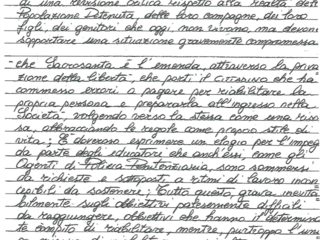 di una revisione critica rispetto alla realtà della
Popolazione Detenuta, delle loro compagne, dei loro
figli, dei genitori che oggi, non vivono, ma devono
sopportare una situazione gravemente compromessa
- che Sacrosanta è l'emenda, attraverso la priva
zione della libertà, che porti il cittadino che ha
commesso errori a pagare per riabilitare la
propria persona e prepararla all'ingresso nella
Società, volgendo verso la stessa come una riso
sa, abbracciando le regole come proprio stile di
vita; È doveroso esprimere un elogio per l'impegno
da parte degli educatori che anch'essi, come gli
Agenti di Polizia Penitenziaria, sono sommersi
da richieste e sottoposti a ritmi di lavoro inac
cepibili da sostenere; Tutto questo, grava inevita
bilmente sugli obbiettivi palesemente difficili
da raggiungere, obbiettivi che hanno il determinan
te compito di riabilitare, mentre, purtroppo l'uni